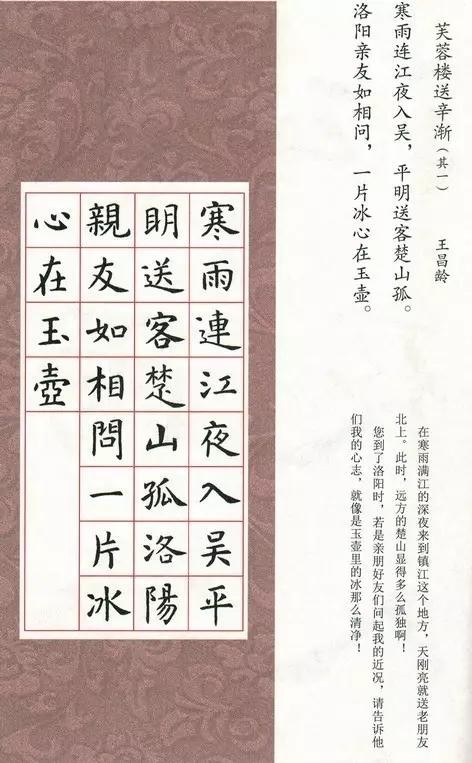 芙蓉楼送辛渐（其一） 王昌龄
寒雨连江夜入吴，平明送客楚山孤。
洛阳亲友如相问，一片冰心在玉壶。
在寒雨满江的深夜来到镇江这个地方，天刚亮就送老朋友
北上。此时，远方的楚山显得多么孤独啊！
您到了洛阳时，若是亲朋好友们问起我的近况，请告诉他
们我的心志，就像是玉壶里的冰那么清净！
寒雨連江夜入吴平
明送客楚山孤洛陽
親友如相問一片冰
心在玉壺